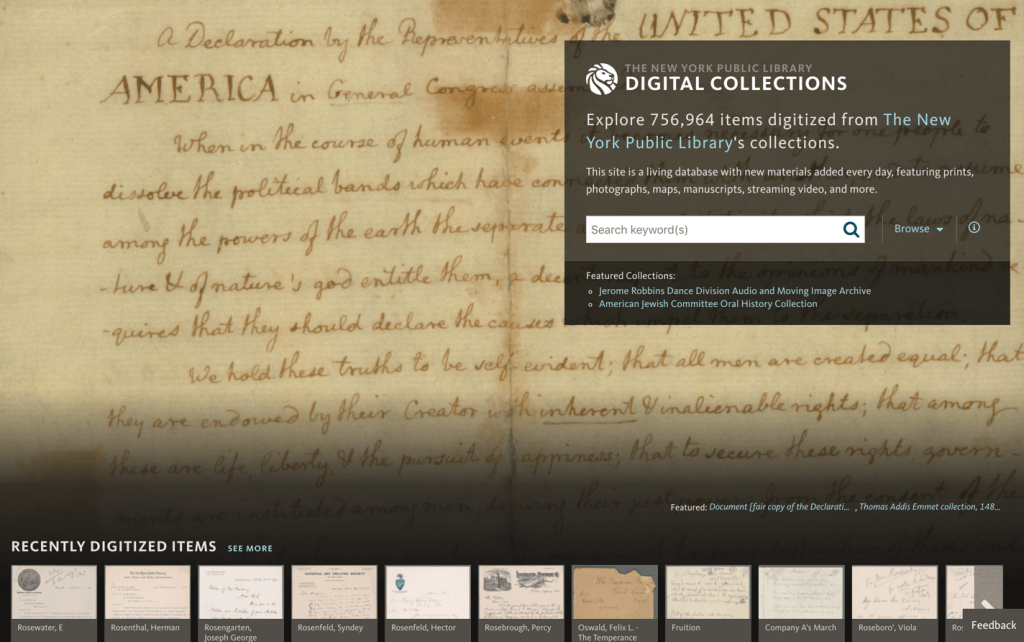 A Declaration by the Representatives of the UNITED STATES OF
AMERICA in General Congress assem
When in the course of human events it
dissolve the political bands which have con
among the powers of the earth the separate
-ture & of nature's god entitle them, a dece
-quires that they should declare the causes which impel them to the separation
We hold these truths to be self-evident; that all men are created equal; that
they are endowed by their Creator with inherent & inalienable rights; that among
these are life, liberty, & the pursuit of happiness; that to secure these rights, govern-
-ments are instituted among men, deriving their just powers from the consent of the
THE NEW YORK PUBLIC LIBRARY
DIGITAL COLLECTIONS
Explore 756,964 items digitized from The New
York Public Library's collections.
This site is a living database with new materials added every day, featuring prints,
photographs, maps, manuscripts, streaming video, and more.
Search keyword(s)
Browse
Featured Collections:
Jerome Robbins Dance Division Audio and Moving Image Archive
American Jewish Committee Oral History Collection
Featured: Document [fair copy of the Declarati... , Thomas Addis Emmet collection, 148...
RECENTLY DIGITIZED ITEMS SEE MORE
Rosewater, E
Rosenthal, Herman
Rosengarten,
Joseph George
Rosenfeld, Syndey
Rosenfeld, Hector
Rosebrough, Percy
Oswald, Felix L. -
The Temperance
Fruition
Company A's March
Roseboro', Viola
Ros
Feedback